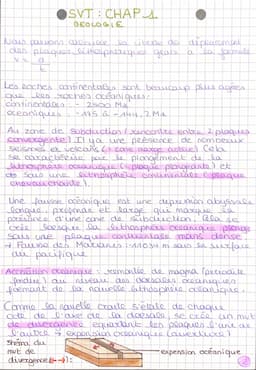 SVT : CHAP 1
GEOLOGIE
Nous pouvons calculer la vitesse de déplacement
des plaques lithosphériques grâce à la formule
v = d
Les roches continentales sont beaucoup plus agées
que les roches océaniques:
continentales : - 2500 Ma
océaniques :
Au zone de subduction (rencontre entre 2 plaques
convergente) Il y a une présence de nombreux
séismes et volcans ( Cela
se caractérise par le plongement de la
lithosphère océanique (plaque plongeante) et
de sous une lithosphère continentale (plaque
chevauchante).
Une fausse océanique est une dépression abyssale
longue, profonde et large qui marque la
présence d'une zone de subduction. Cela se
crée lorsque la lithosphère océanique plonge
sous une plaque continentale moins dense.
→ Fausse des Mariannes : 11034 m sous la surface
du pacifique
Accrétion océanique : remontée de magma (péridotite
fondue) au niveau des dorsales océaniques
formant de la nouvelle lithosphère océanique.
Comme la nouvelle croute s'étale de chaque
coté de l'axe de la dorsale, se crée un mvt
de divergence écartant les plaques l'une de
l'autre → expansion océanique (ouverture)
Shéma du
mvt de
divergence
expansion océanique